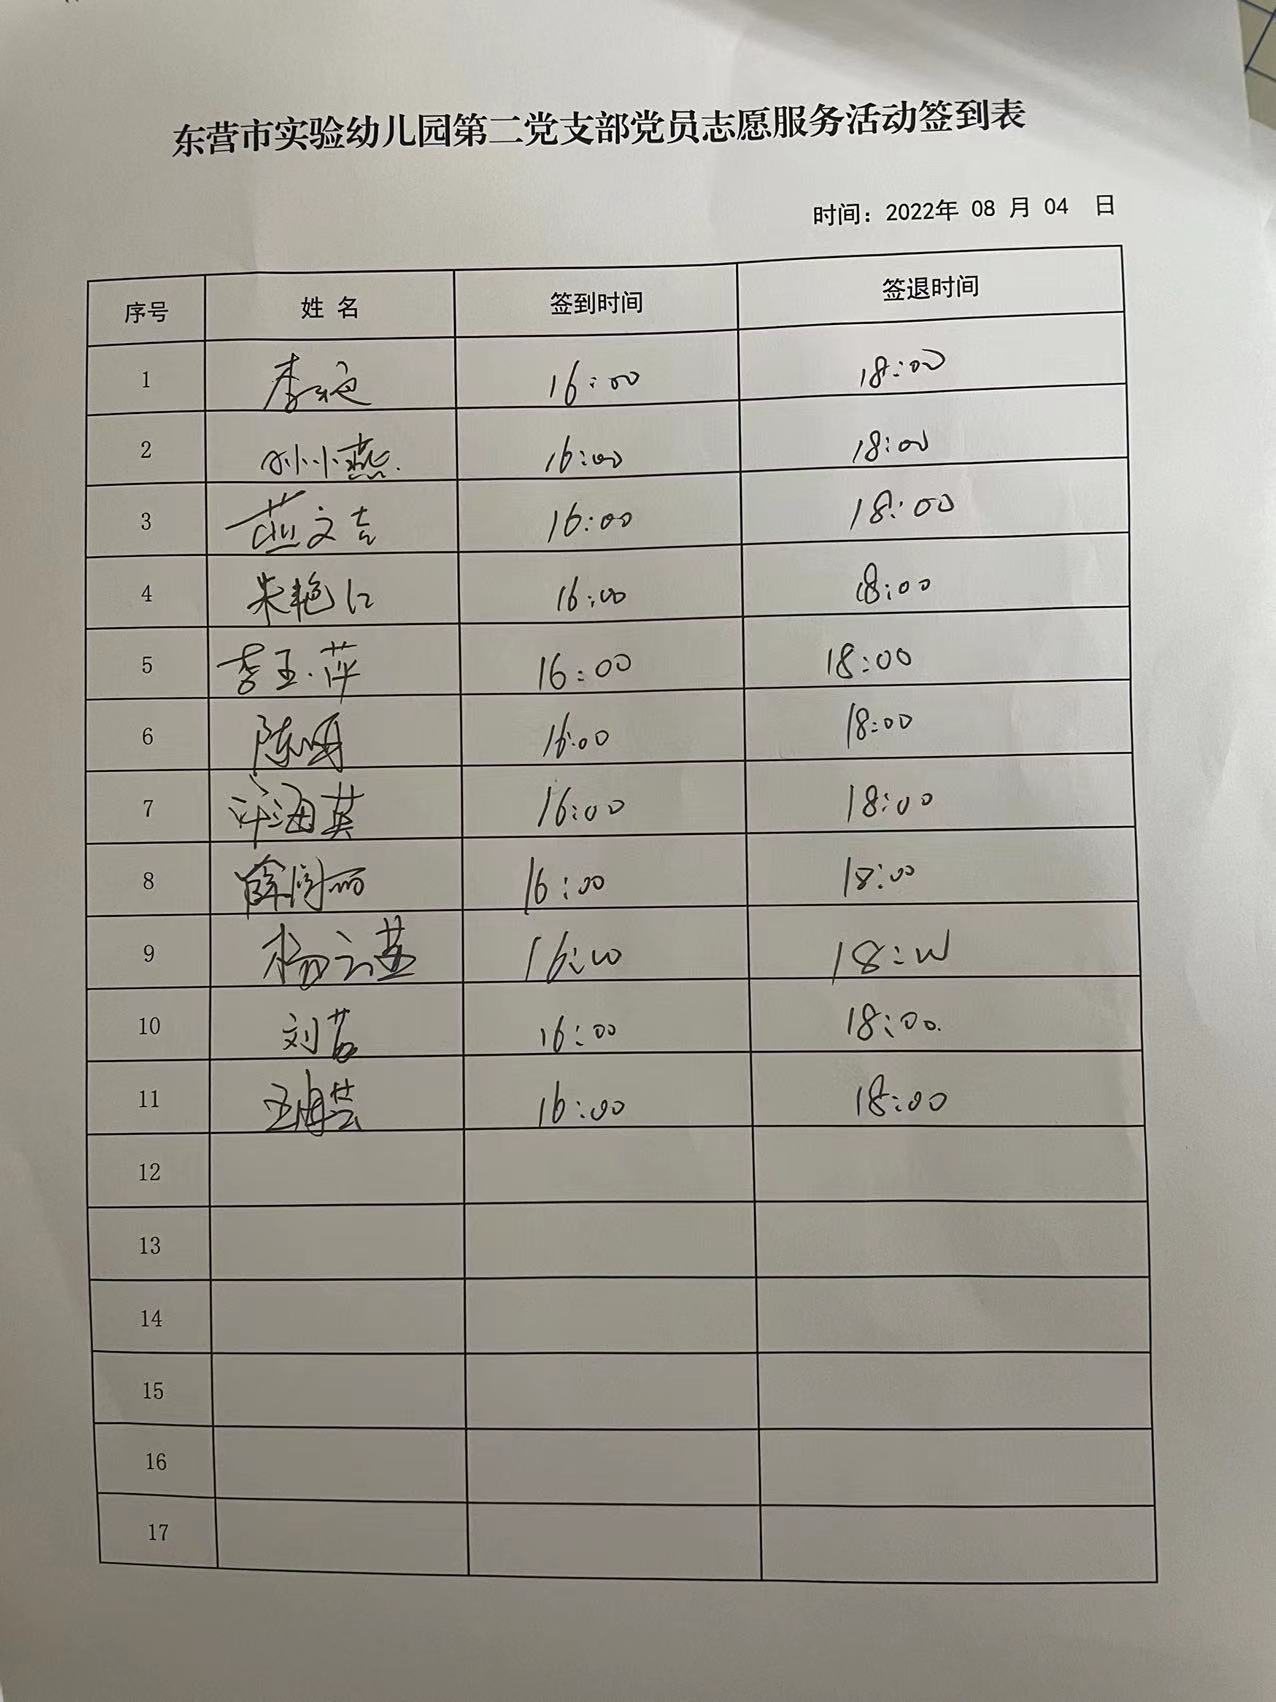 东营市实验幼儿园第二党支部党员志愿服务活动签到表
时间：2022年 08 月 04 日
序号 姓 名 签到时间 签退时间
1 李 16:00 18:00
2 孙小燕. 16:00 18:00
3 燕文吉 16:00 18:00
4 朱艳红 16:00 18:00
5 李玉萍 16:00 18:00
6 陈 16:00 18:00
7 许海英 16:00 18:00
8 薛闰丽 16:00 18:00
9 杨云燕 16:00 18:00
10 刘茗 16:00 18:00.
11 王海芸 16:00 18:00
12
13
14
15
16
17